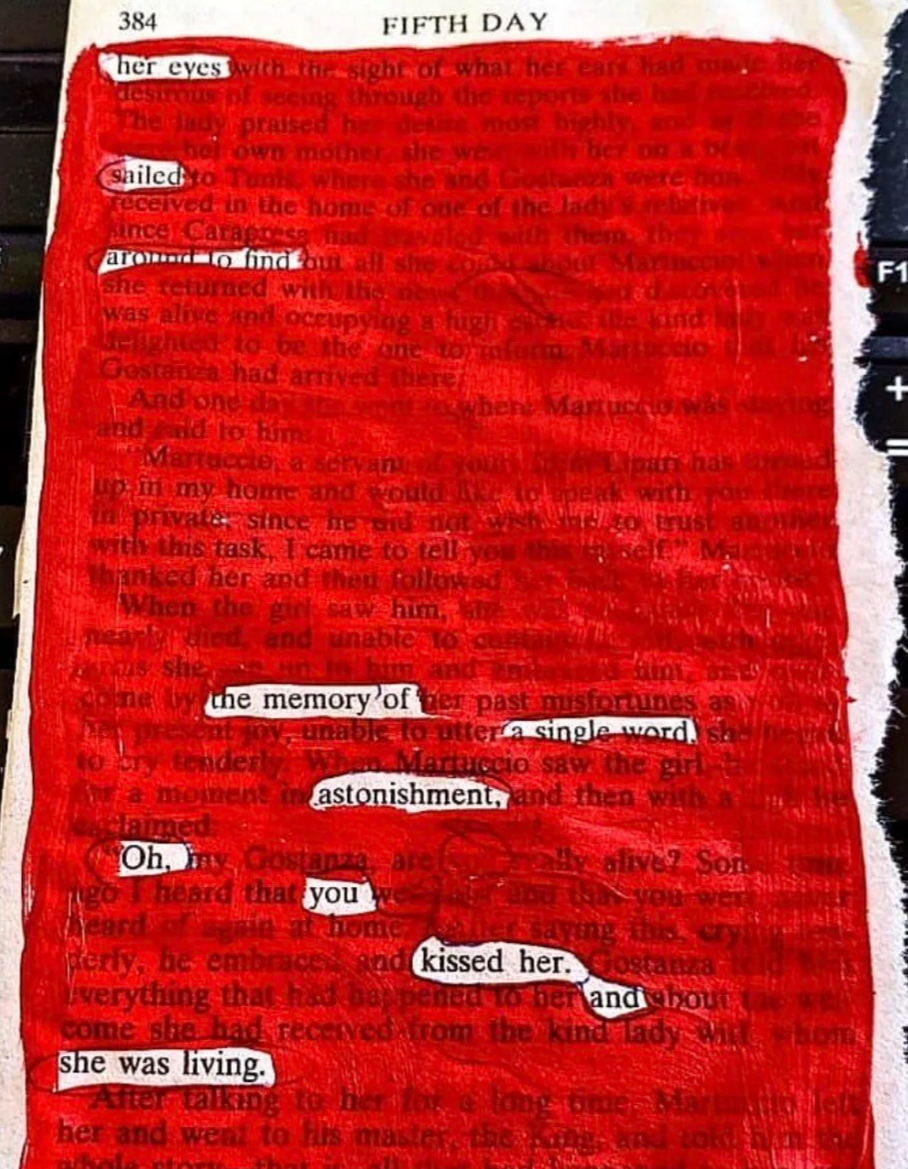 384 FIFTH DAY
her eyes with the sight of what her ears had made her
desirous of seeing through the reports she had received.
The lady praised her desire most highly, and
her own mother, she went with her on a
sailed to Tunis, where she and Gostanza were
received in the home of one of the lady's relatives. And
since Carapresa had traveled with them, they
around to find out all she could about Martuccio; when
she returned with the news
was alive and occupying a high the kind lady
delighted to be the one to inform Martuccio
Gostanza had arrived there.
And one day she went to where Martuccio was staying
and said to him:
"Martuccio, a servant of yours from Lipari has turned
up in my home and would like to speak with you there
in private; since he did not wish me to trust another
with this task, I came to tell you this myself." Martuccio
thanked her and then followed her
When the girl saw him, she
nearly died, and unable to
she ran up to him and embraced him,
come by the memory of her past misfortunes as
her present joy, unable to utter a single word, she began
to cry tenderly. When Martuccio saw the girl,
for a moment in astonishment, and then with a
exclaimed:
"Oh, my Gostanza, are you really alive? Some time
ago I heard that you were and that you were
heard of again at home. After saying this, crying
derly, he embraced and kissed her. Gostanza told him
everything that had happened to her and about the wel-
come she had received from the kind lady with whom
she was living.
After talking to her for a long time, Martuccio left
her and went to his master, the King, and told him the
whole story, that is, all
F1
+
=